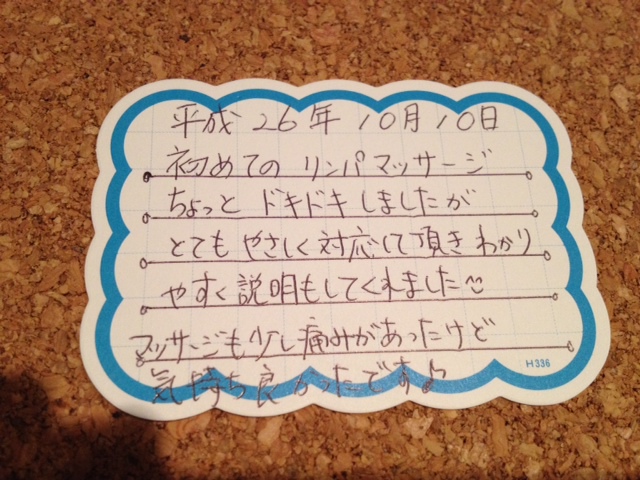 平成26年10月10日
初めての リンパマッサージ
ちょっと ドキドキしましたが
とても やさしく対応して頂き わかり
やすく説明もしてくれました
マッサージも少し痛みがあったけど
H336
気持ち良かったです♪